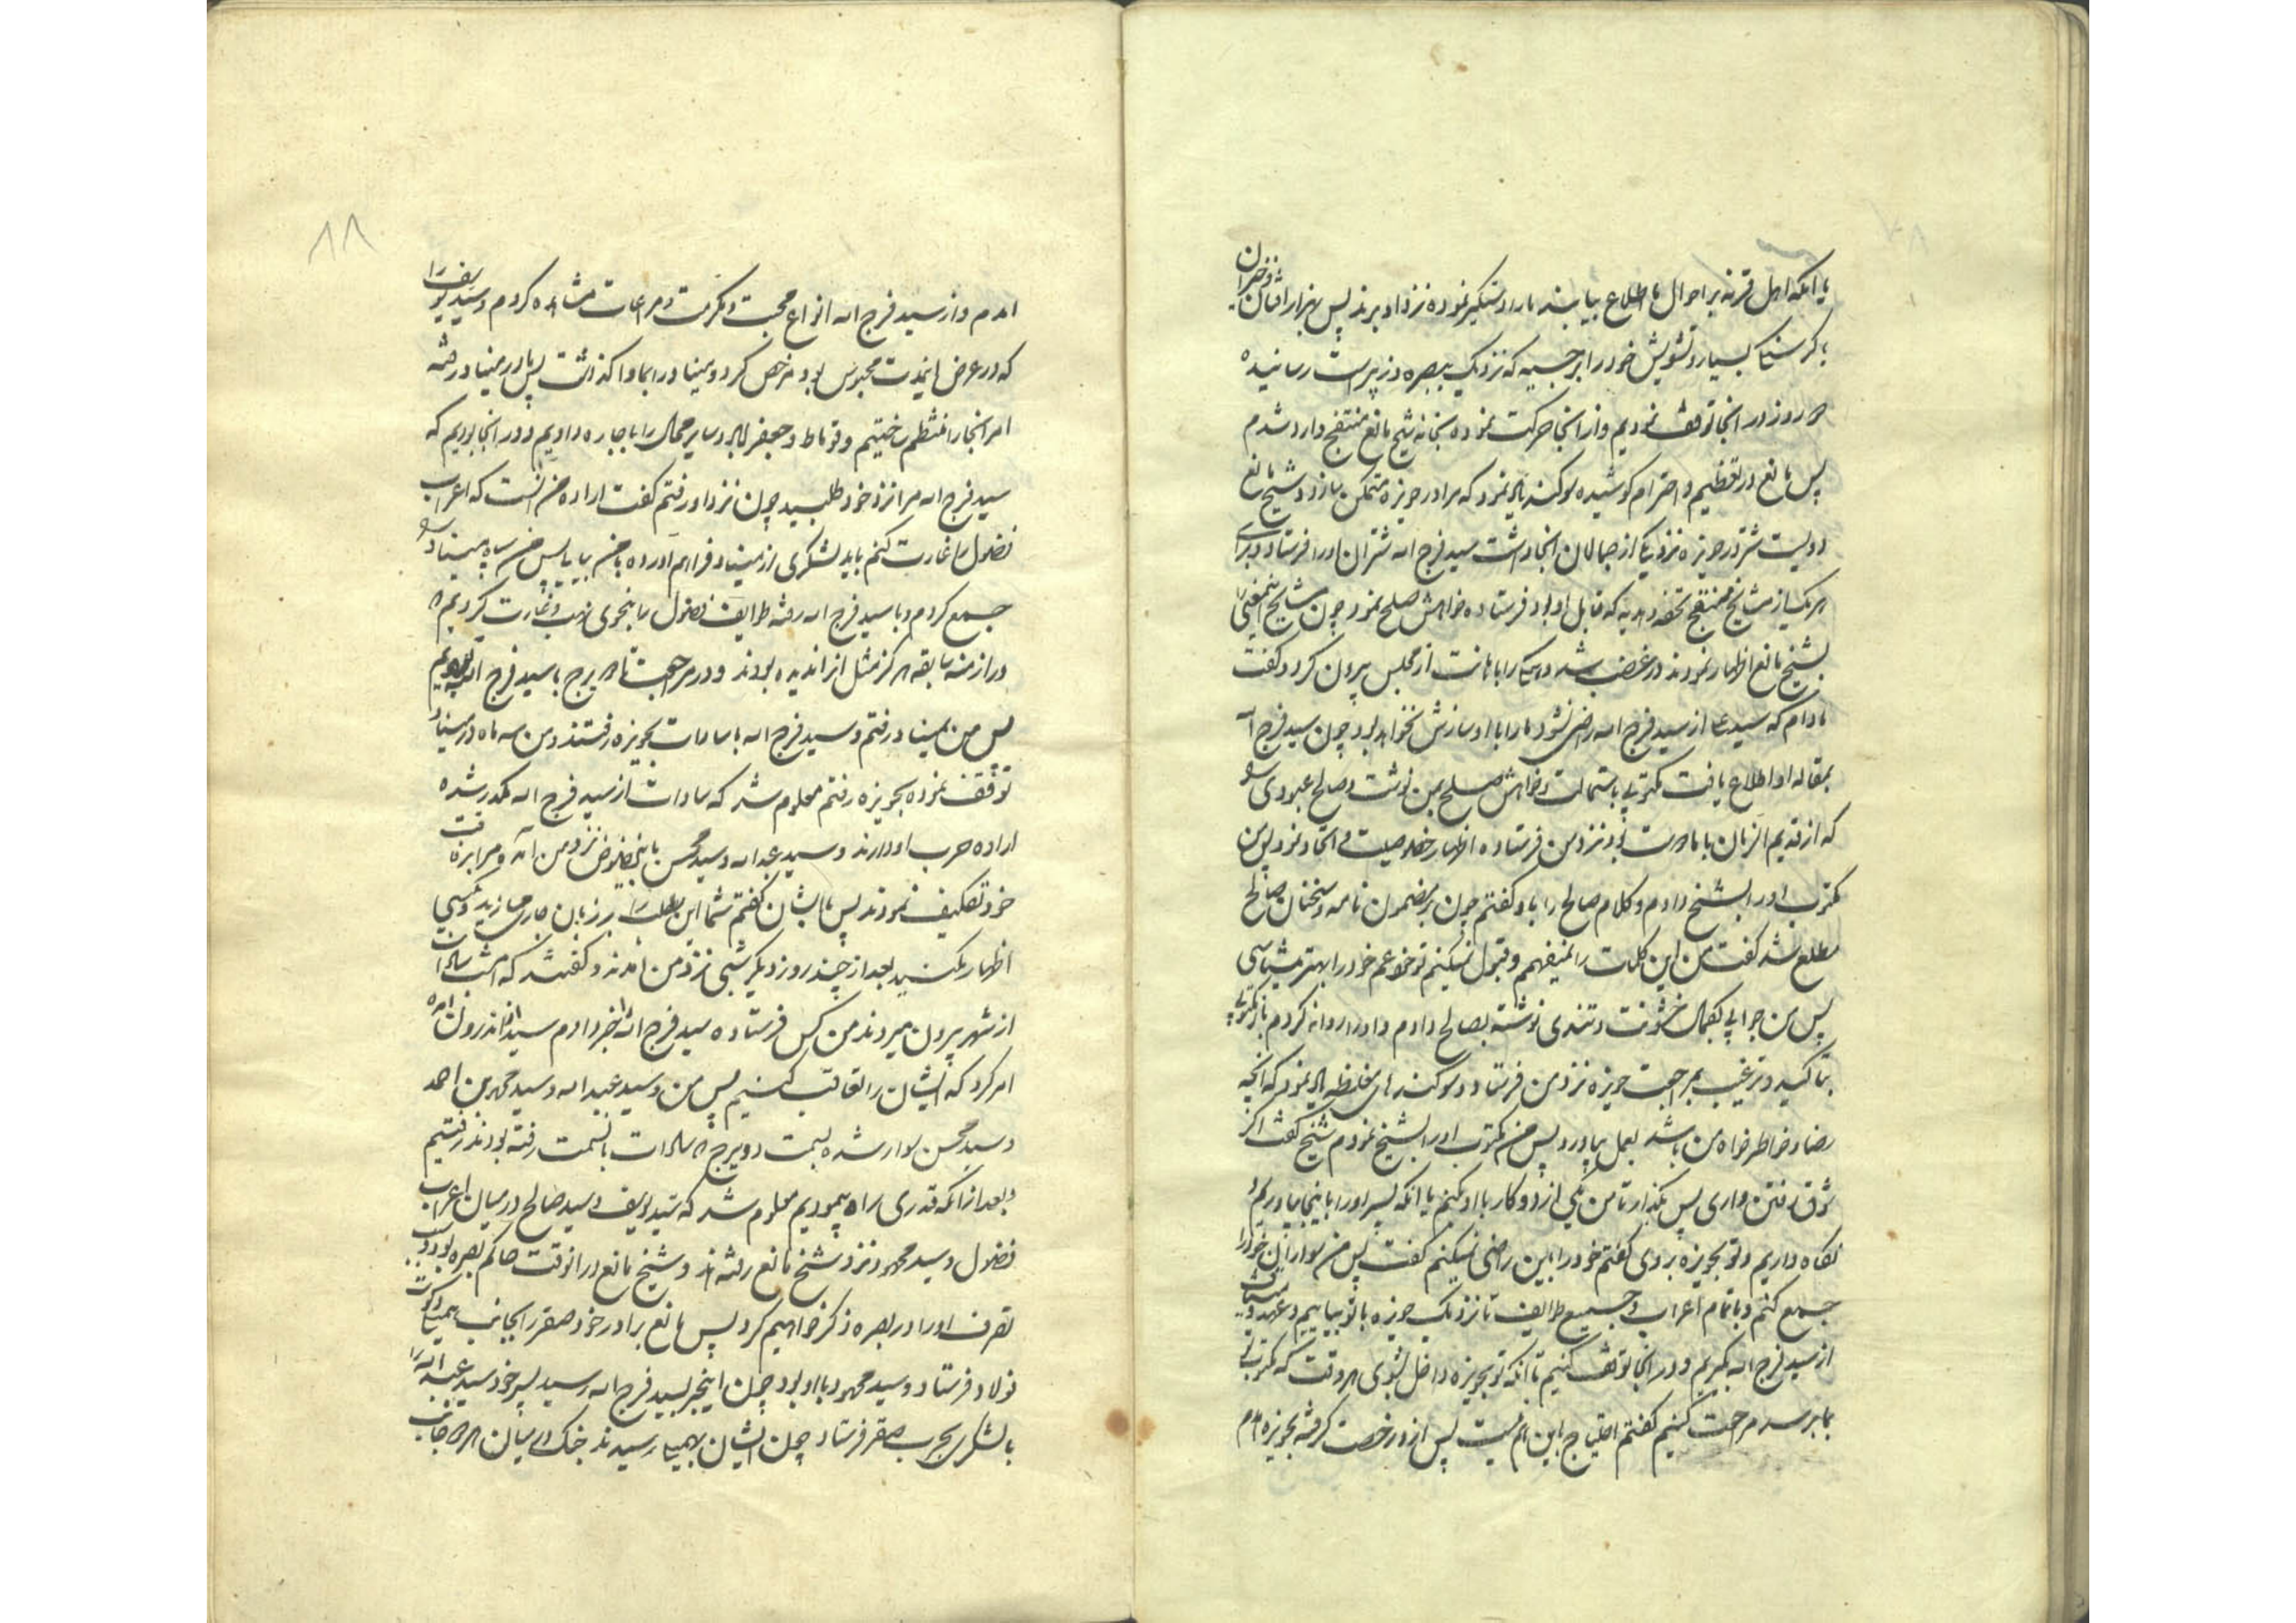 یا آنکه اهل قرنه بر احوال ما اطلاع بیابند ما را دستگیر نموده نزد او برند پس بهزار افتان و خیزان
با گرسنگی بسیار و تشویش خود را بر جسیه که نزدیک ببصره و زیر پرست رسانیده
روز در انجا توقف نمودیم و از انجا حرکت نموده بخانه شیخ مانع منتفج وارد شدم
پس مانع در تعظیم و احترام کوشیده سوکند یاد نمود که مرا در حویزه متمکن سازد و شیخ مانع
دویست شتر در حویزه نزد یکی از جمالان انجا داشت سید فرج اله شتران او را فرستاد و برای
هر یک از مشایخ منتفج تحفه و هدیه که قابل او بود فرستاده خواهش صلح نمود چون مشایخ
بشیخ مانع اظهار نمودند در غضب شد و را باهانت از مجلس بیرون کرد و کفت
مادام که سید علی از سید فرج اله راضی نشود ما را با او سازش نخواهد بود چون سید فرج اله
بمقاله او اطلاع یافت مکتوبی باستمالت و خواهش صلح بمن نوشت و صالح عبودی
که از قدیم الزمان با ما دوست بود نزد من فرستاده اظهار خصوصیت و اتحاد نمود پس من
مکتوب او را بشیخ دادم و کلام صالح را باو کفتم چون بر مضمون نامه و سخنان صالح
مطلع شد کفت من این کلمات را نمیفهمم و قبول نمیکنم تو خود عم خود را بهتر میشناسی
پس من جوابی بکمال خشونت و تندی نوشته بصالح دادم و او را روانه کردم باز مکتوبی
بتاکید و ترغیب بمراجعت حویزه نزد من فرستاد و سوکندهای مغلظه یاد نمود که آنچه
رضا و خاطر خواه من باشد بعمل بیاورد پس من مکتوب او را بشیخ نمودم شیخ کفت اکر
شوق رفتن داری پس بگذار تا من یکی از دو کار با او کنم یا آنکه پسر او را باینجا بیاوریم و
نکاه داریم و تو بحویزه بروی کفتم خود را باین راضی نمیکنم کفت پس من سواران خود را
جمع کنم و با تمام اعراب و جمیع طوایف تا نزدیک حویزه با تو بیاییم و عهد و میثاق
از سید فرج اله بگیریم و در انجا توقف کنیم تا آنکه تو بحویزه داخل بشوی هر وقت که مکتوب تو
بما برسد مراجعت کنیم کفتم احتیاج باین هم نیست پس از او رخصت کرفته بحویزه آمدم
۸۸
آمدم و از سید فرج اله انواع محبت و مکرمت و مراعات مشاهده کردم و سید یوسف را
که در عرض اینمدت محبوس بود مرخص کرد و میناو را بما واکذاشت پس ما در میناو رفته
امر انجا را منتظم ساختیم و و جعفر و سایر محال را باجاره دادیم و در انجا بودیم که
سید فرج اله مرا نزد خود طلبید چون نزد او رفتم کفت اراده من آنست که اعراب
فضول را غارت کنم باید لشکری از میناو فراهم آورده با من بیایی پس من سپاه میناو را
جمع کردم و با سید فرج اله رفته طوایف فضول را بنحوی نهب و غارت کردیم که
در ازمنه سابقه هرکز مثل آن ندیده بودند و در مراجعت تا دویرج با سید فرج اله بودیم
پس من بمیناو رفتم و سید فرج اله با سادات بحویزه رفتند و من سه ماه در میناو
توقف نموده بحویزه رفتم معلوم شد که سادات از سید فرج اله مکدر شده
اراده حرب او دارند و سید عبد اله و سید محسن باین خصوص نزد من آمده و مرا برفاقت
خود تکلیف نمودند پس بایشان کفتم شما این را بر زبان جاری مسازید و بکسی
اظهار مکنید بعد از چند روز دیکر شبی نزد من آمدند و کفتند که امشب سادات
از شهر بیرون میروند من کس فرستاده سید فرج اله را خبر دادم سید از اندرون آمده
امر کرد که ایشان را تعاقب کنیم پس من و سید عبد اله و سید محمد بن احمد
و سید محسن سوار شده بسمت دویرج که سادات بانسمت رفته بودند رفتیم
و بعد از آنکه قدری راه پیمودیم معلوم شد که سید یوسف و سید صالح در میان اعراب
فضول و سید محمود نزد شیخ مانع رفته اند و شیخ مانع در انوقت حاکم بصره بود و سبب
تصرف او را در بصره ذکر خواهیم کرد پس مانع برادر خود صقر را بجانب
فولاد فرستاد و سید محمود با او بود چون اینخبر بسید فرج اله رسید پسر خود سید عبد اله را
با لشکری بحرب صقر فرستاد چون ایشان رسیدند جنک در میان هر دو جانب